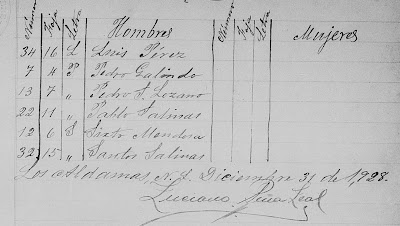 Número Foja Letra Hombres Número Foja Letra Mujeres
34 16 L Luis Pérez
7 4 P Pedro Galindo
13 7 „ Pedro S. Lozano
22 11 „ Pablo Salinas
12 6 S Sixto Mendoza
32 15 „ Santos Salinas
Los Aldamas, N. L. Diciembre 31 de 1,928.
Luciano Peña Leal